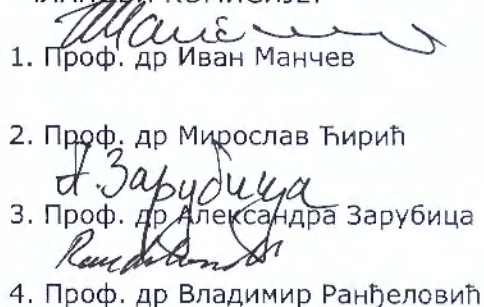 ЧЛАНОВИ КОМИСИЈЕ:
1. Проф. др Иван Манчев
2. Проф. др Мирослав Ћирић
А. Зарубица
3. Проф. др Александра Зарубица
4. Проф. др Владимир Ранђеловић